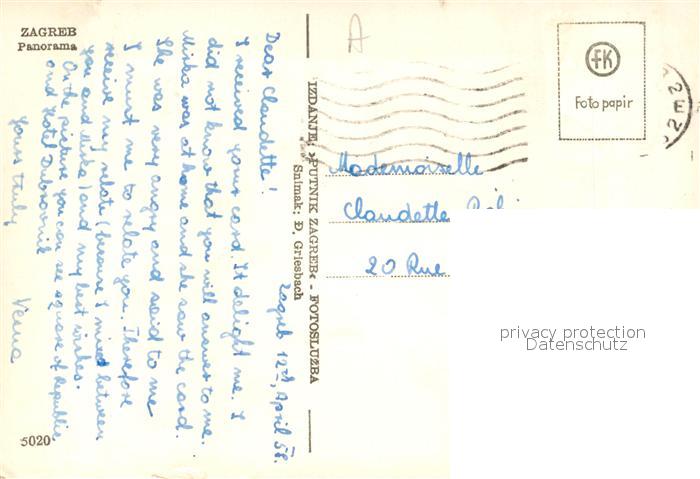 ZAGREB
Panorama
Zagreb 12th, April 58.
Dear Claudette!
I received your card. It delight me. I
did not know that you will answer to me.
Miska was at home and she saw the card.
She was very angry and said to me
I must me to relate you. Therefore
receive my relate (because I mixed between
you and Miska) and my best wishes.
On the picture you can see square of Republic
and Hotel Dubrovnik
Yours truly
Vesna
5020
IZDANJE: »PUTNIK ZAGREB« - FOTOSLUŽBA
Snimak: Đ. Griesbach
A
FK
Foto papir
Mademoiselle
Claudette
20 Rue
privacy protection
Datenschutz